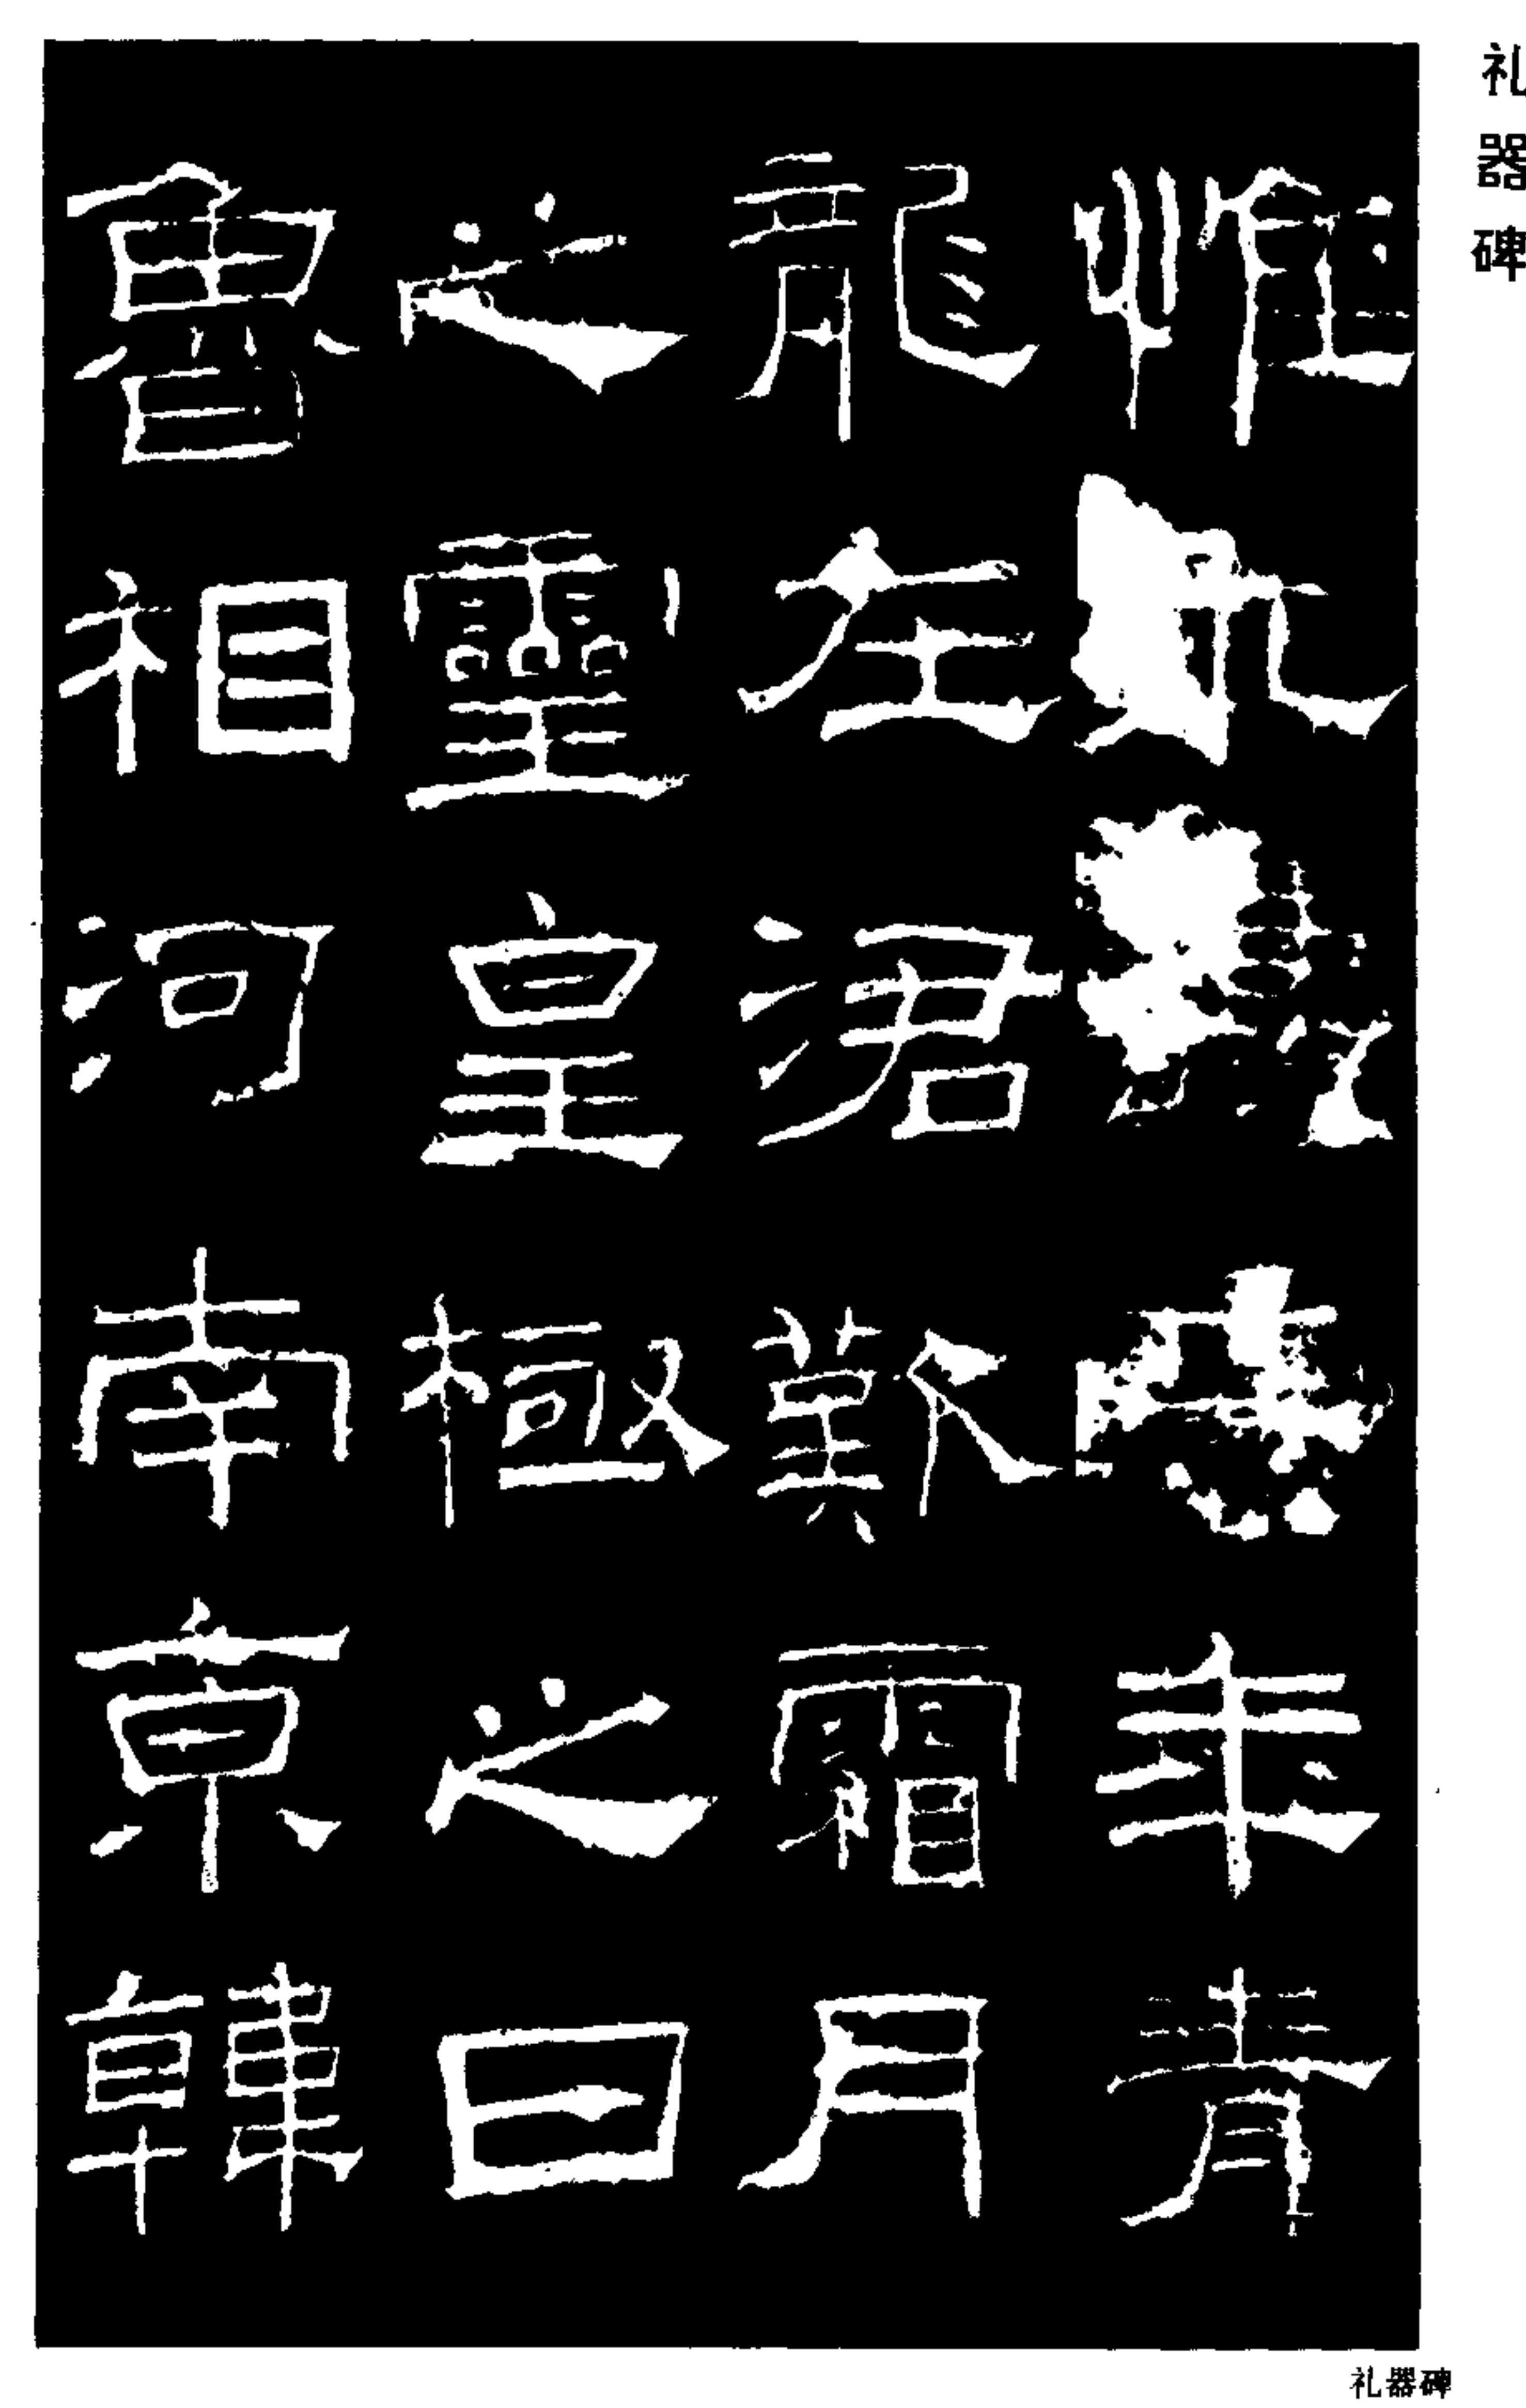 礼器碑
惟永壽二年青
龍在涒歎霜月
之靈皇極之日
魯相河南京韓
礼器碑